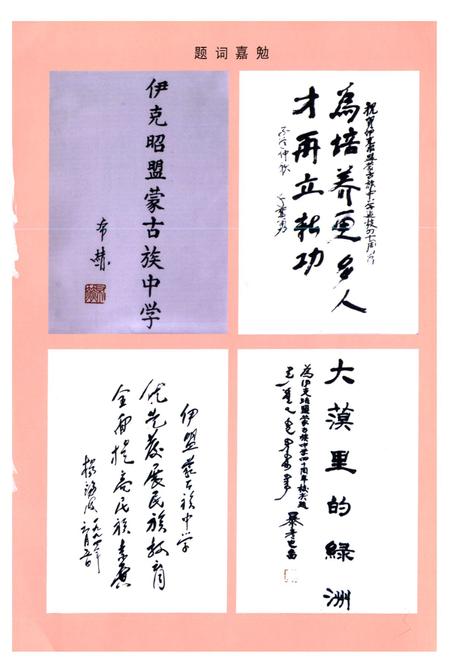 题词嘉勉
伊克昭盟蒙古族中学
布赫
祝贺伊克昭盟蒙古族中学建校四十周年
为培养更多人
才再立新功
伊盟蒙古族中学
优先发展民族教育
全面提高民族素质
大漠里的緑洲
为伊克昭盟蒙古族中学四十周年校庆题